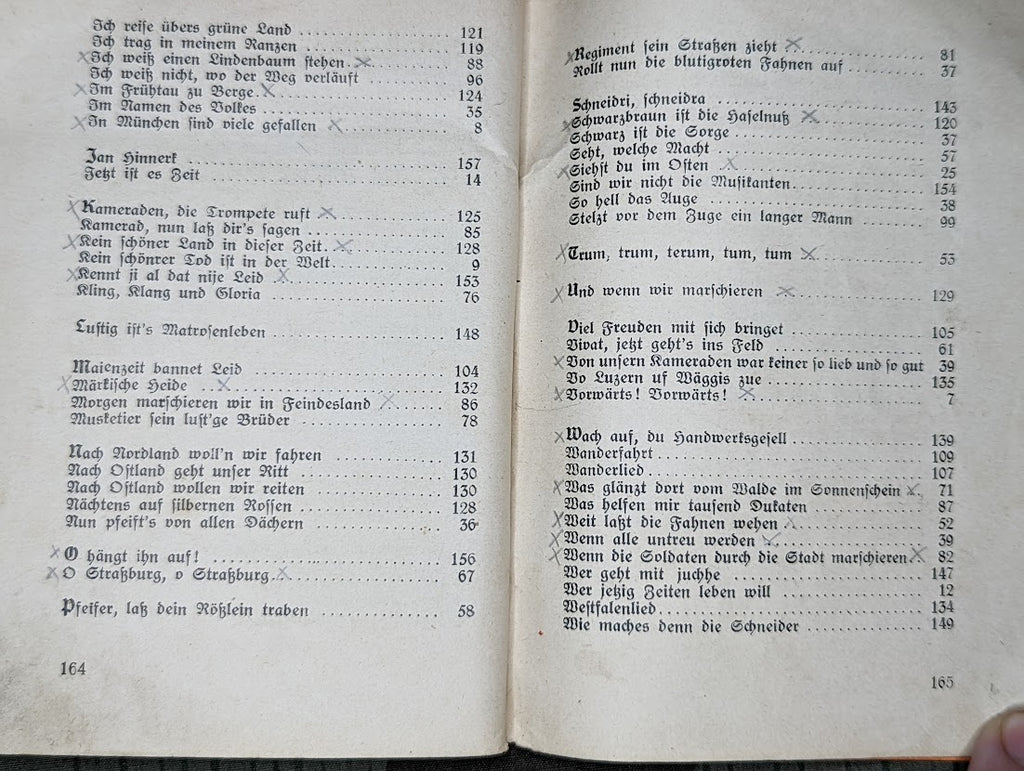 Ich reise übers grüne Land 121
Ich trag in meinem Ranzen 119
Ich weiß einen Lindenbaum stehen 88
Ich weiß nicht, wo der Weg verläuft 96
Im Frühtau zu Berge 124
Im Namen des Volkes 35
In München sind viele gefallen 8
Jan Hinnerk 157
Jetzt ist es Zeit 14
Kameraden, die Trompete ruft 125
Kamerad, nun laß dir's sagen 85
Kein schöner Land in dieser Zeit 128
Kein schönrer Tod ist in der Welt 9
Kennt ji al dat nije Leid 153
Kling, Klang und Gloria 76
Lustig ist's Matrosenleben 148
Maienzeit bannet Leid 104
Märkische Heide 132
Morgen marschieren wir in Feindesland 86
Musketier sein lust'ge Brüder 78
Nach Nordland woll'n wir fahren 131
Nach Ostland geht unser Ritt 130
Nach Ostland wollen wir reiten 130
Nächtens auf silbernen Rossen 128
Nun pfeift's von allen Dächern 36
O hängt ihn auf! 156
O Straßburg, o Straßburg 67
Pfeifer, laß dein Rößlein traben 58
164
Regiment sein Straßen zieht 81
Rollt nun die blutigroten Fahnen auf 37
Schneidri, schneidra 143
Schwarzbraun ist die Haselnuß 120
Schwarz ist die Sorge 37
Seht, welche Macht 57
Siehst du im Osten 25
Sind wir nicht die Musikanten 154
So hell das Auge 38
Stelzt vor dem Zuge ein langer Mann 99
Trum, trum, terum, tum, tum 53
Und wenn wir marschieren 129
Viel Freuden mit sich bringet 105
Vivat, jetzt geht's ins Feld 61
Von unsern Kameraden war keiner so lieb und so gut 39
Vo Luzern uf Wäggis zue 135
Vorwärts! Vorwärts! 7
Wach auf, du Handwerksgesell 139
Wanderfahrt 109
Wanderlied 107
Was glänzt dort vom Walde im Sonnenschein 71
Was helfen mir tausend Dukaten 87
Weit laßt die Fahnen wehen 52
Wenn alle untreu werden 39
Wenn die Soldaten durch die Stadt marschieren 82
Wer geht mit juchhe 147
Wer jetzig Zeiten leben will 12
Westfalenlied 134
Wie maches denn die Schneider 149
165